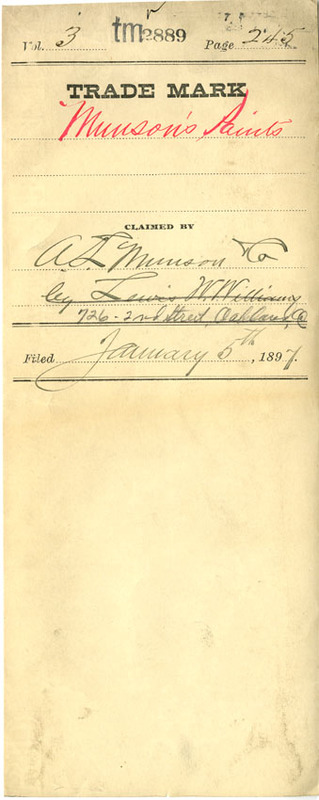 Vol. 3 tm2889 Page 245
TRADE MARK
"Munson's Paints
CLAIMED BY
A. L. Munson & Co
by Lewis W. Williams
726 - 2nd Street, Oakland,
Filed January 5th, 1897.